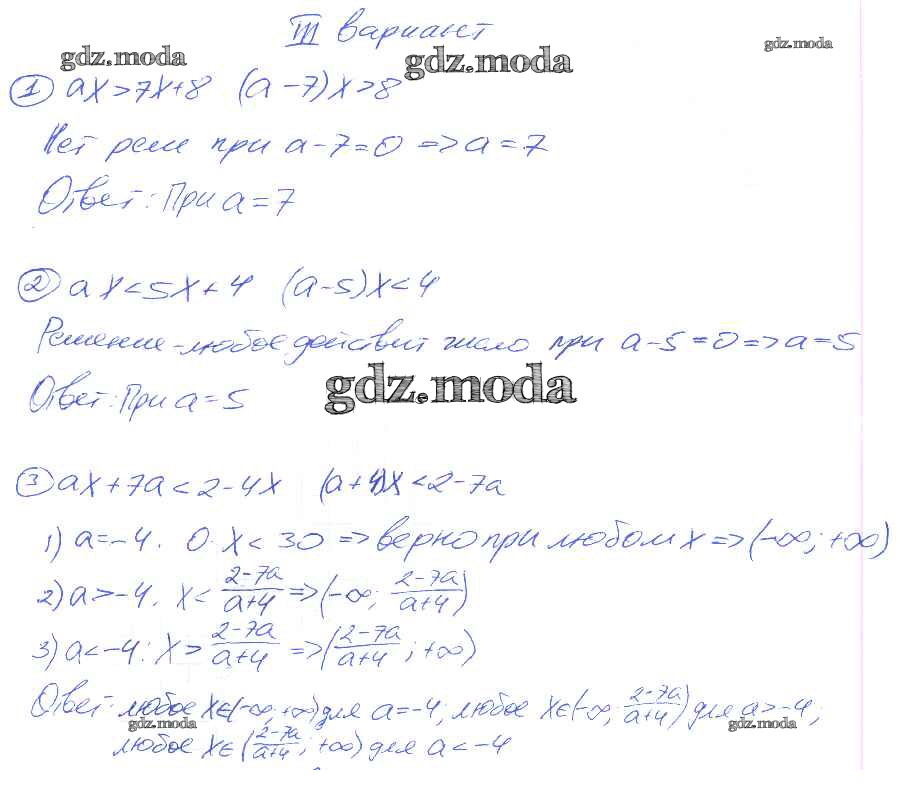 III вариант
gdz.moda
gdz.moda
gdz.moda
① ax>7x+8 (a-7)x>8
Нет реш при a-7=0 => a=7
Ответ: При a=7
② ax<5x+4 (a-5)x<4
Решение - любое действит число при a-5=0=>a=5
gdz.moda
Ответ: При a=5
③ ax+7a<2-4x (a+4)x<2-7a
1) a=-4. 0·x<30 => верно при любом x => (-∞; +∞)
2) a>-4. x< (2-7a)/(a+4) => (-∞; (2-7a)/(a+4))
3) a<-4: x> (2-7a)/(a+4) => ((2-7a)/(a+4); +∞)
Ответ: любое x∈(-∞; +∞) для a=-4; любое x∈(-∞; (2-7a)/(a+4)) для a>-4;
gdz.moda
gdz.moda
любое x∈((2-7a)/(a+4); +∞) для a<-4